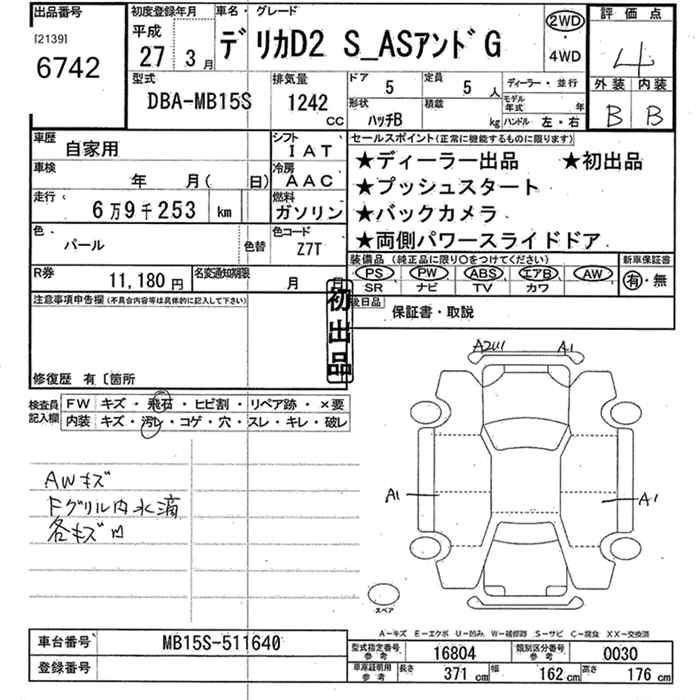 出品番号 初度登録年月 車名・グレード 評価点
[2139] 平成 2WD
6742 27 3月 デリカD2 S_ASアンドG ・ 4
4WD
型式 排気量 ドア 5 定員 5人 ディーラー・並行 外装 内装
DBA-MB15S 1242cc 形状 ハッチB 積載 kg モデル年式 年 B B
ハンドル 左・右
車歴 自家用 シフト IAT セールスポイント(正常に機能するものに限ります)
車検 年 月( 日) 冷房 AAC ★ディーラー出品 ★初出品
走行 6万9千253 km 燃料 ガソリン ★プッシュスタート
★バックカメラ
色 パール 色替 色コード Z7T ★両側パワースライドドア
R券 11,180円 名変通知期限 月 日 装備品(純正品に限り○をつけてください) 新車保証書
PS PW ABS エアB AW 有・無
SR ナビ TV カワ
注意事項申告欄(不具合内容等は具体的に記入して下さい) 初出品 後日品
保証書・取説
修復歴 有〔箇所
検査員記入欄 FW キズ・飛石・ヒビ割・リペア跡・×要
内装 キズ・汚レ・コゲ・穴・スレ・キレ・破レ
A2 A1
AWキズ
Fグリル内水滴
各キズ凹
A1 A1
スペア
A-キズ E-エクボ U-凹み W-補修跡 S-サビ C-腐食 XX-交換済
車台番号 MB15S-511640
登録番号
型式指定番号 参考 16804 類別区分番号 参考 0030
車庫証明用 参考 長さ 371cm 幅 162cm 高さ 176cm